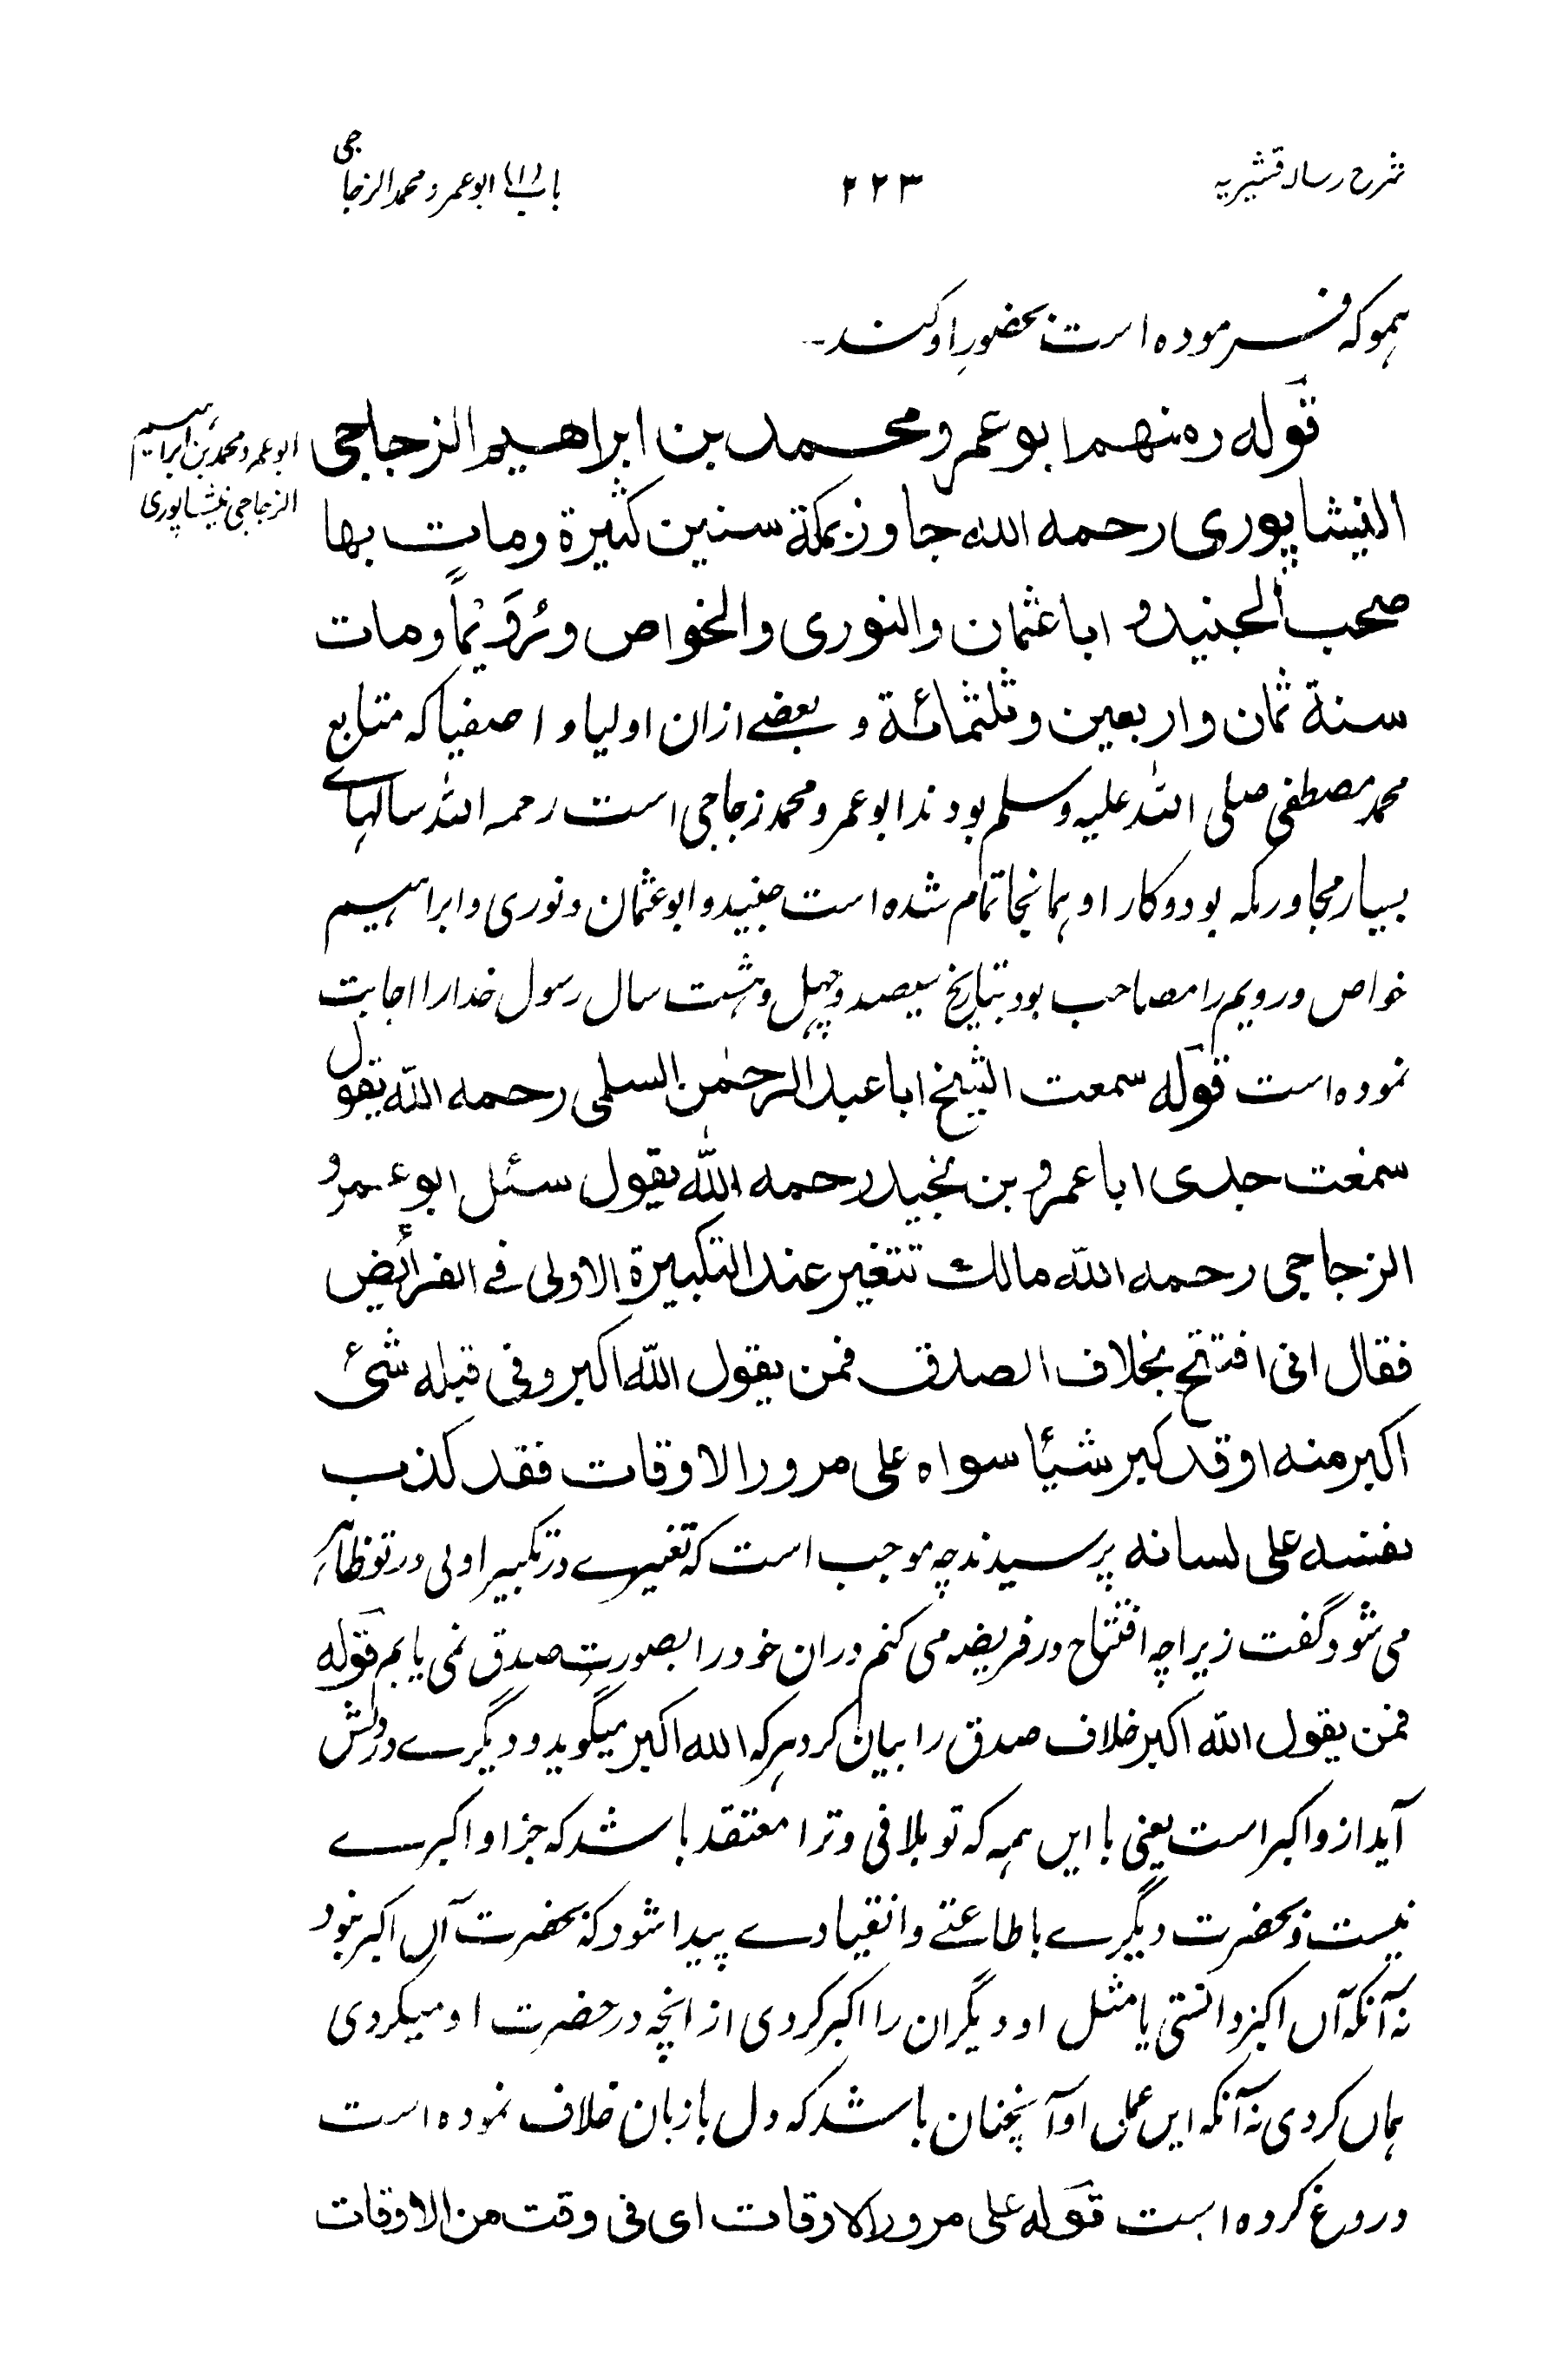 شرح رسالہ قشیریہ
۲۲۳
باب (۱) ابوعمرو محمد الزجاجی
ہموکہ فرمودہ است بحضورِ او کند۔
قولہ رہ منھم ابو عمرو محمد بن ابراھیم الزجاجی
ابوعمرو محمد بن ابراہیم
الزجاجی نیشاپوری
النیشاپوری رحمہ اللہ جاوز بمکة سنین کثیرة ومات بھا
صحب الجنید و اباعثمان والنوری والخواص ورُوَیْمًا ومات
سنة ثمان واربعین وثلثمائة و بعضے ازان اولیا و اصفیا کہ متابع
محمد مصطفی صلی اللہ علیہ وسلم بودند ابوعمرو محمد زجاجی است رحمہ اللہ سالہاے
بسیار مجاور مکہ بود وکار او ہمانجا تمام شدہ است جنید و ابوعثمان ونوری وابراہیم
خواص ورویم را مصاحب بود بتاریخ سیصد وچہل وہشت سال رسول خدا را اجابت
نمودہ است قولہ سمعت الشیخ اباعبد الرحمٰن السلمی رحمہ اللہ یقول
سمعت جدی اباعمرو بن نجید رحمہ اللہ یقول سئل ابوعمرو
الزجاجی رحمہ اللہ مالک تتغیر عند التکبیرة الاولی فے الفرائض
فقال انی افتتح بخلاف الصدق فمن یقول اللہ اکبر وفی قبلہ شئ
اکبر منہ اوقد کبر شیئا سواہ علی مرور الاوقات فقد کذب
نفسہ علی لسانہ پرسیدند چہ موجب است کہ تغیرے در تکبیر اولی در تو ظاہر
می شود گفت زیراچہ افتتاح در فریضہ می کنم دران خود را بصورتِ صدق نمی یابم قولہ
فمن یقول اللہ اکبر خلاف صدق را بیان کرد ہر کہ اللہ اکبر میگوید و دیگرے در دلش
آید ازو اکبر است یعنی با ایں ہمہ کہ تو بلافی وترا معتقد باشد کہ جز او اکبرے
نیست و بحضرت دیگرے باطاعتے وانقیادے پیدا شود کہ بحضرت آں اکبر نبود
نہ آنکہ آں اکبر دانستی یا مثل او دیگران را اکبر کردی از انچہ در حضرت او میکردی
ہماں کردی نہ آنکہ ایں عمل او آنچنان باشد کہ دل بازبان خلاف نمودہ است
دروغ کردہ است قولہ علی مرور الاوقات ای فی وقت من الاوقات